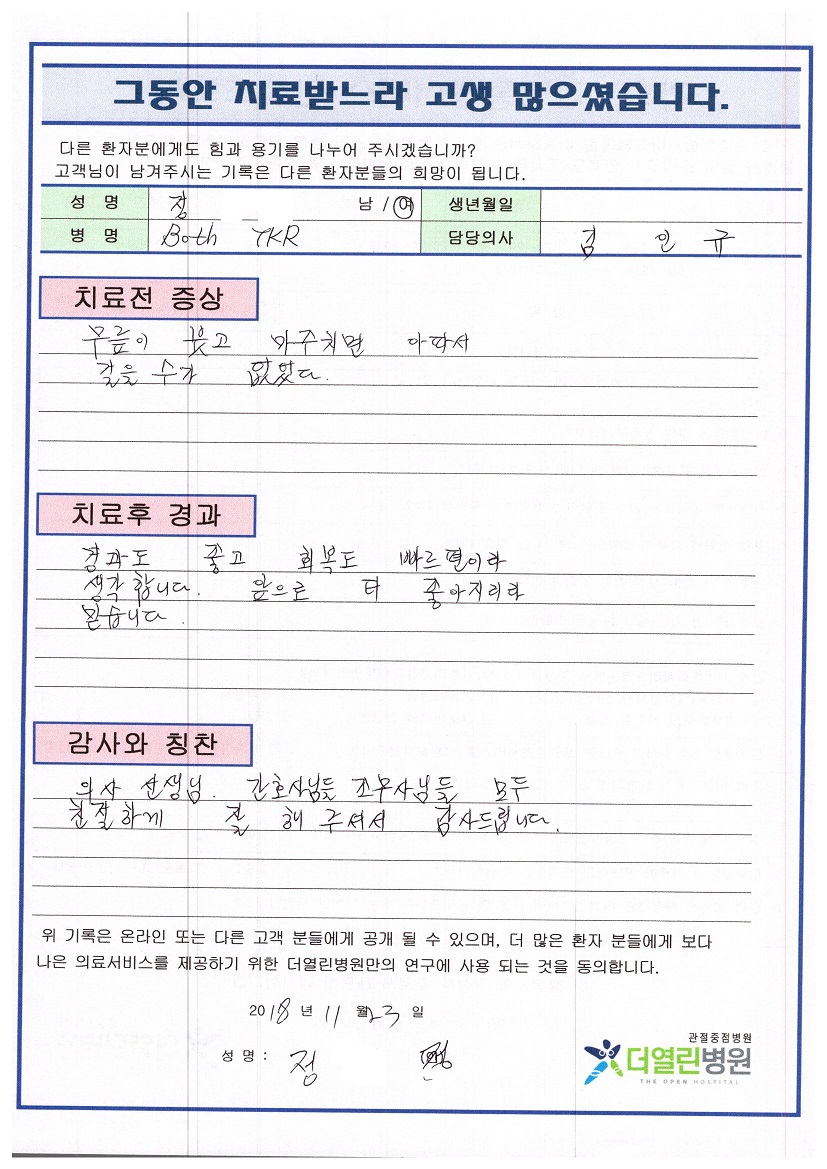 그동안 치료받느라 고생 많으셨습니다.
다른 환자분에게도 힘과 용기를 나누어 주시겠습니까?
고객님이 남겨주시는 기록은 다른 환자분들의 희망이 됩니다.
성 명 정 남 / 여 생년월일
병 명 Both TKR 담당의사 김 인 규
치료전 증상
무릎이 붓고 마주치면 아파서
걸을 수가 없었다.
치료후 경과
경과도 좋고 회복도 빠르편이라
생각합니다. 앞으로 더 좋아지리라
믿습니다.
감사와 칭찬
의사 선생님. 간호사님들 조무사님들 모두
친절하게 잘 해 주셔서 감사드립니다.
위 기록은 온라인 또는 다른 고객 분들에게 공개 될 수 있으며, 더 많은 환자 분들에게 보다
나은 의료서비스를 제공하기 위한 더열린병원만의 연구에 사용 되는 것을 동의합니다.
2018 년 11 월 23 일
성 명 : 정
관절중점병원
더열린병원
THE OPEN HOSPITAL